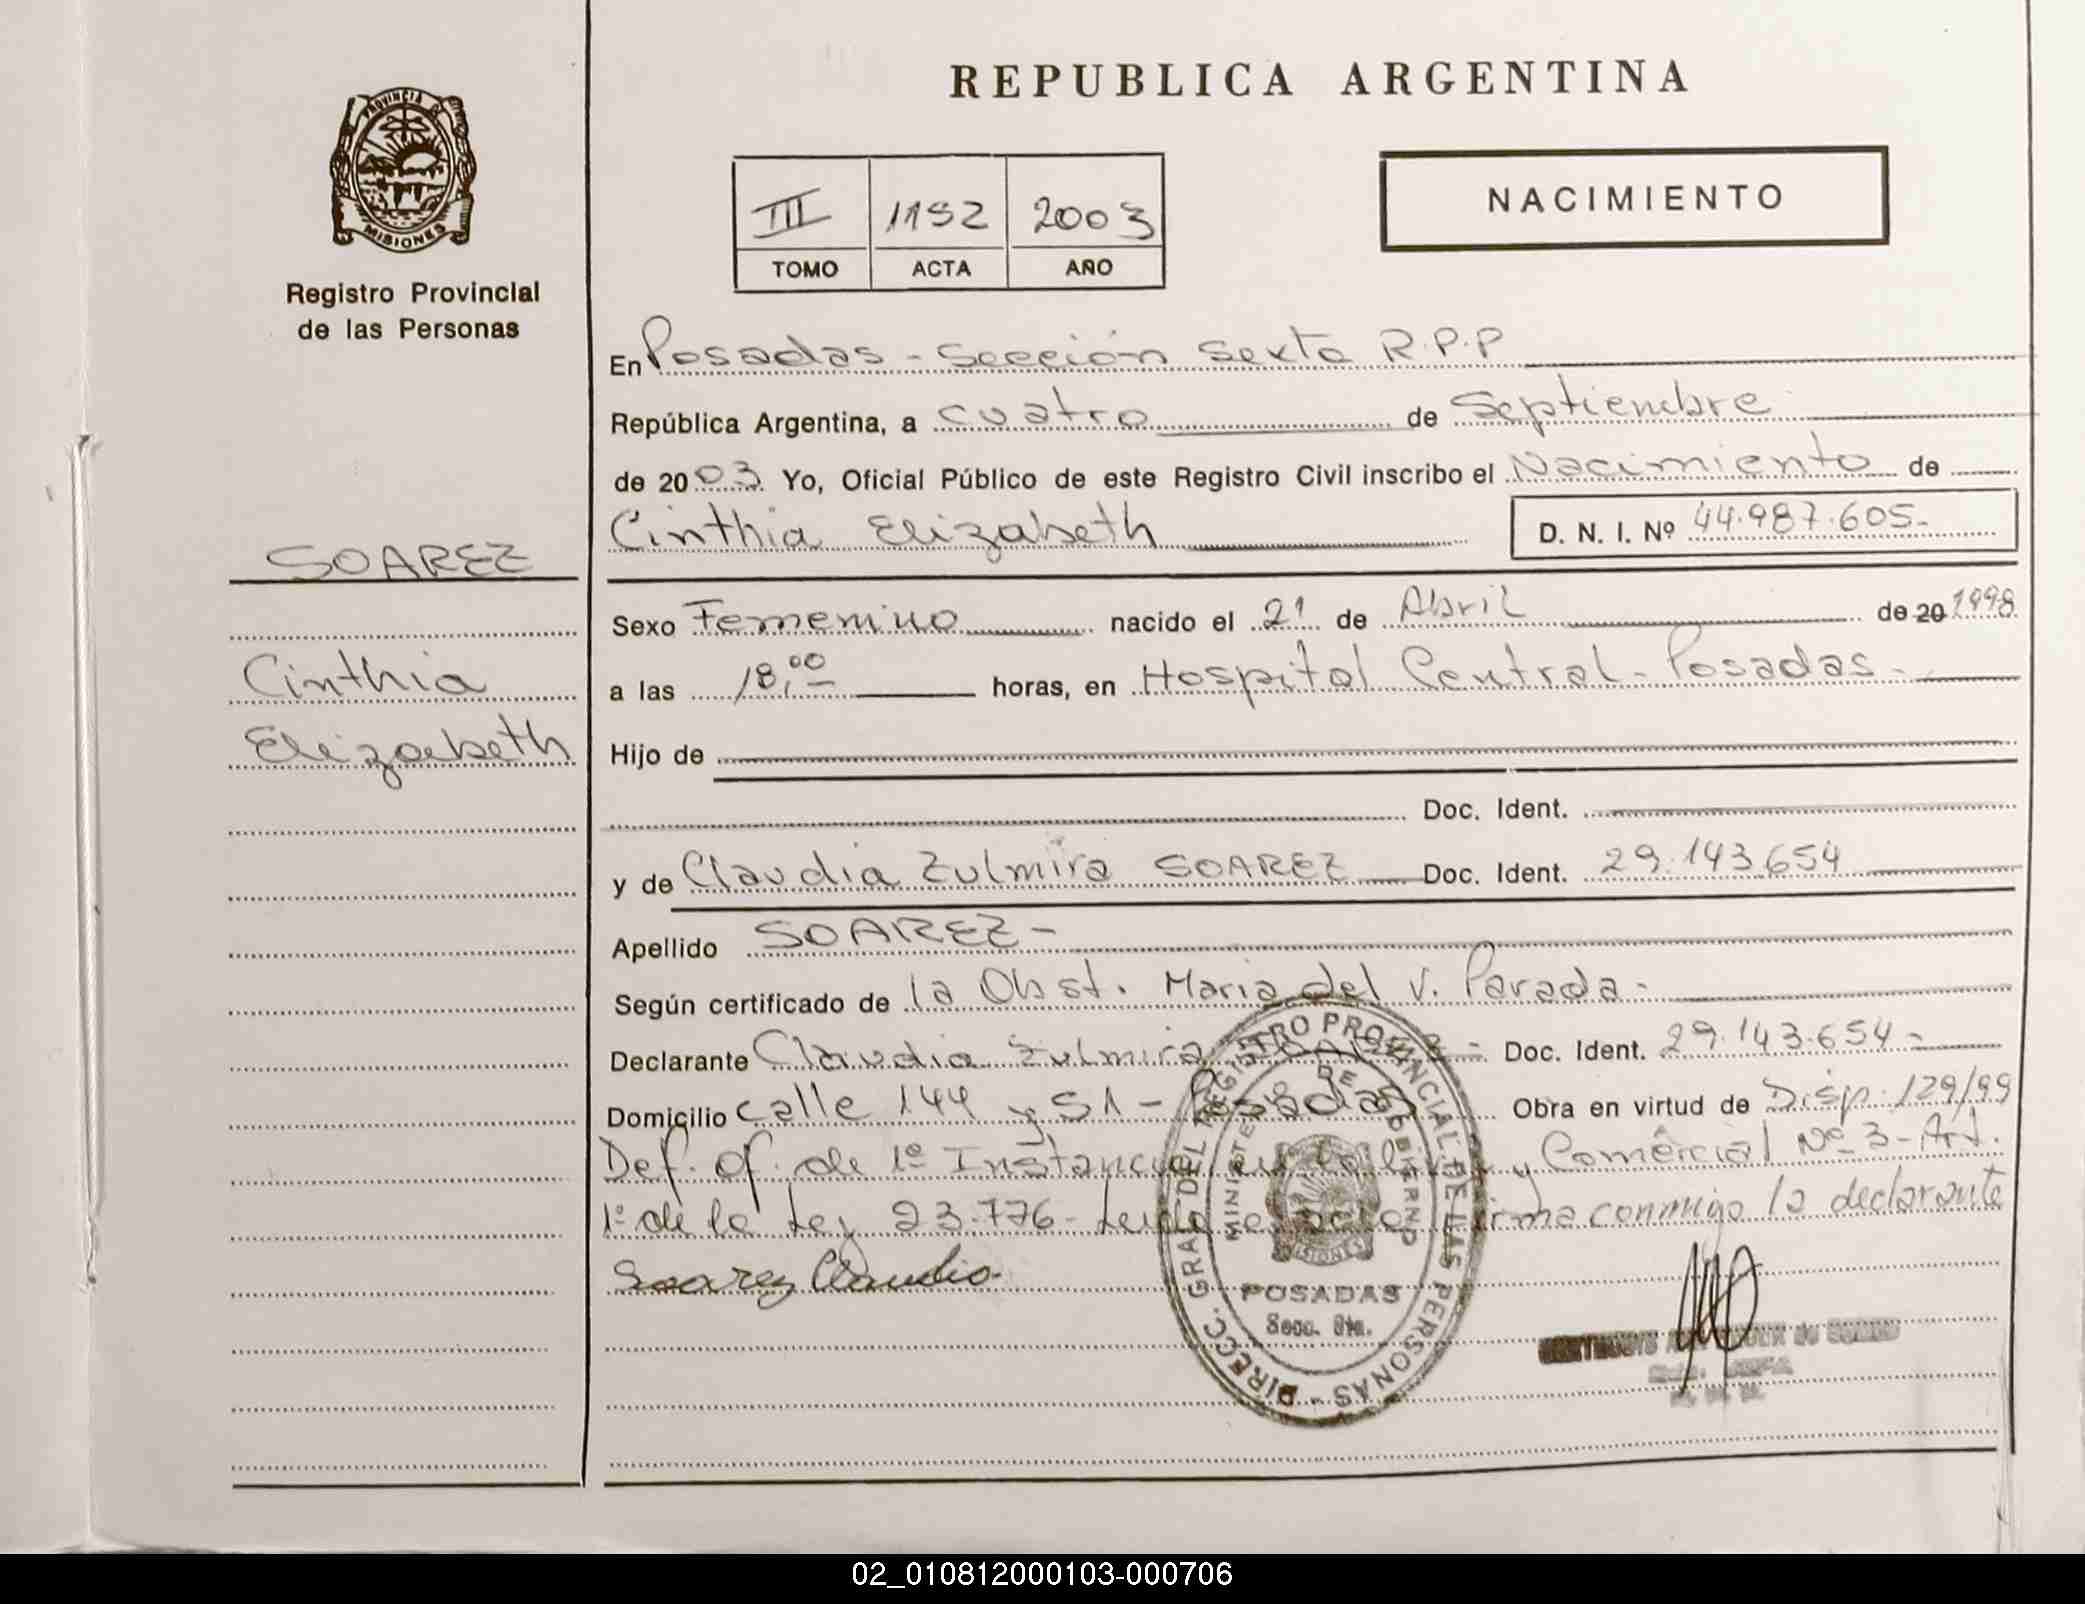 REPUBLICA ARGENTINA
PROVINCIA DE
MISIONES
Registro Provincial
de las Personas
NACIMIENTO
III 1192 2003
TOMO ACTA AÑO
En Posadas - Sección Sexta R.P.P
República Argentina, a cuatro de Septiembre
de 2003 Yo, Oficial Público de este Registro Civil inscribo el Nacimiento de
Cinthia Elizabeth D. N. I. Nº 44.987.605-
SOAREZ
Cinthia
Elizabeth
Sexo Femenino nacido el 21 de Abril de 20 1998
a las 18,00 horas, en Hospital Central - Posadas -
Hijo de
Doc. Ident.
y de Claudia Zulmira SOAREZ Doc. Ident. 29.143.654
Apellido SOAREZ -
Según certificado de la Obst. Maria del V. Parada -
Declarante Claudia Zulmira SOAREZ - Doc. Ident. 29.143.654 -
Domicilio calle 144 y 51 - Posadas Obra en virtud de Disp. 129/99
Def. of. de 1º Instancia en lo Civil y Comercial Nº 3 - Art.
1º de la Ley 23.776 - Leida el acta firma conmigo la declarante
Soarez Claudia
DIRECC. GRAL DEL REGISTRO PROVINCIAL DE LAS PERSONAS -
MINISTERIO DE GOBIERNO
MISIONES
POSADAS
Secc. 6ta.
02_010812000103-000706